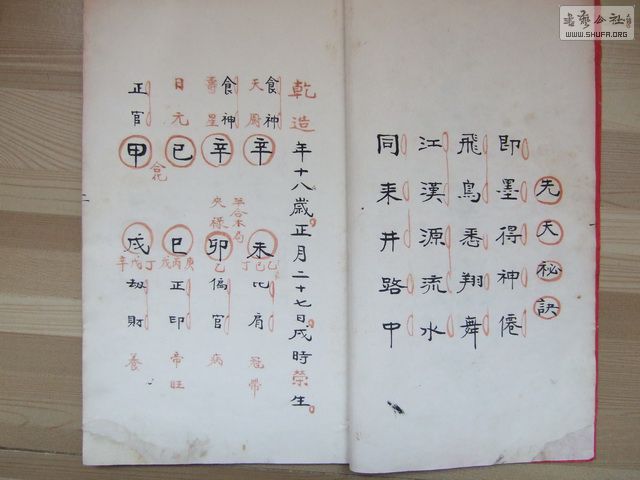 书艺公社
WWW.SHUFA.ORG
先天祕訣
即墨得神僊
飛鳥悉翔舞
江漢源流水
同来井路中
乾造年十八歲正月二十七日戌時榮生
食神
天廚
辛
未
乙己丁
比肩
冠帶
食神
壽星
辛
半合木局
夾祿
卯
乙
偏官
病
日元
己
巳
庚丙戊
正印
帝旺
正官
甲
合化
戌
丁戊辛
劫財
養